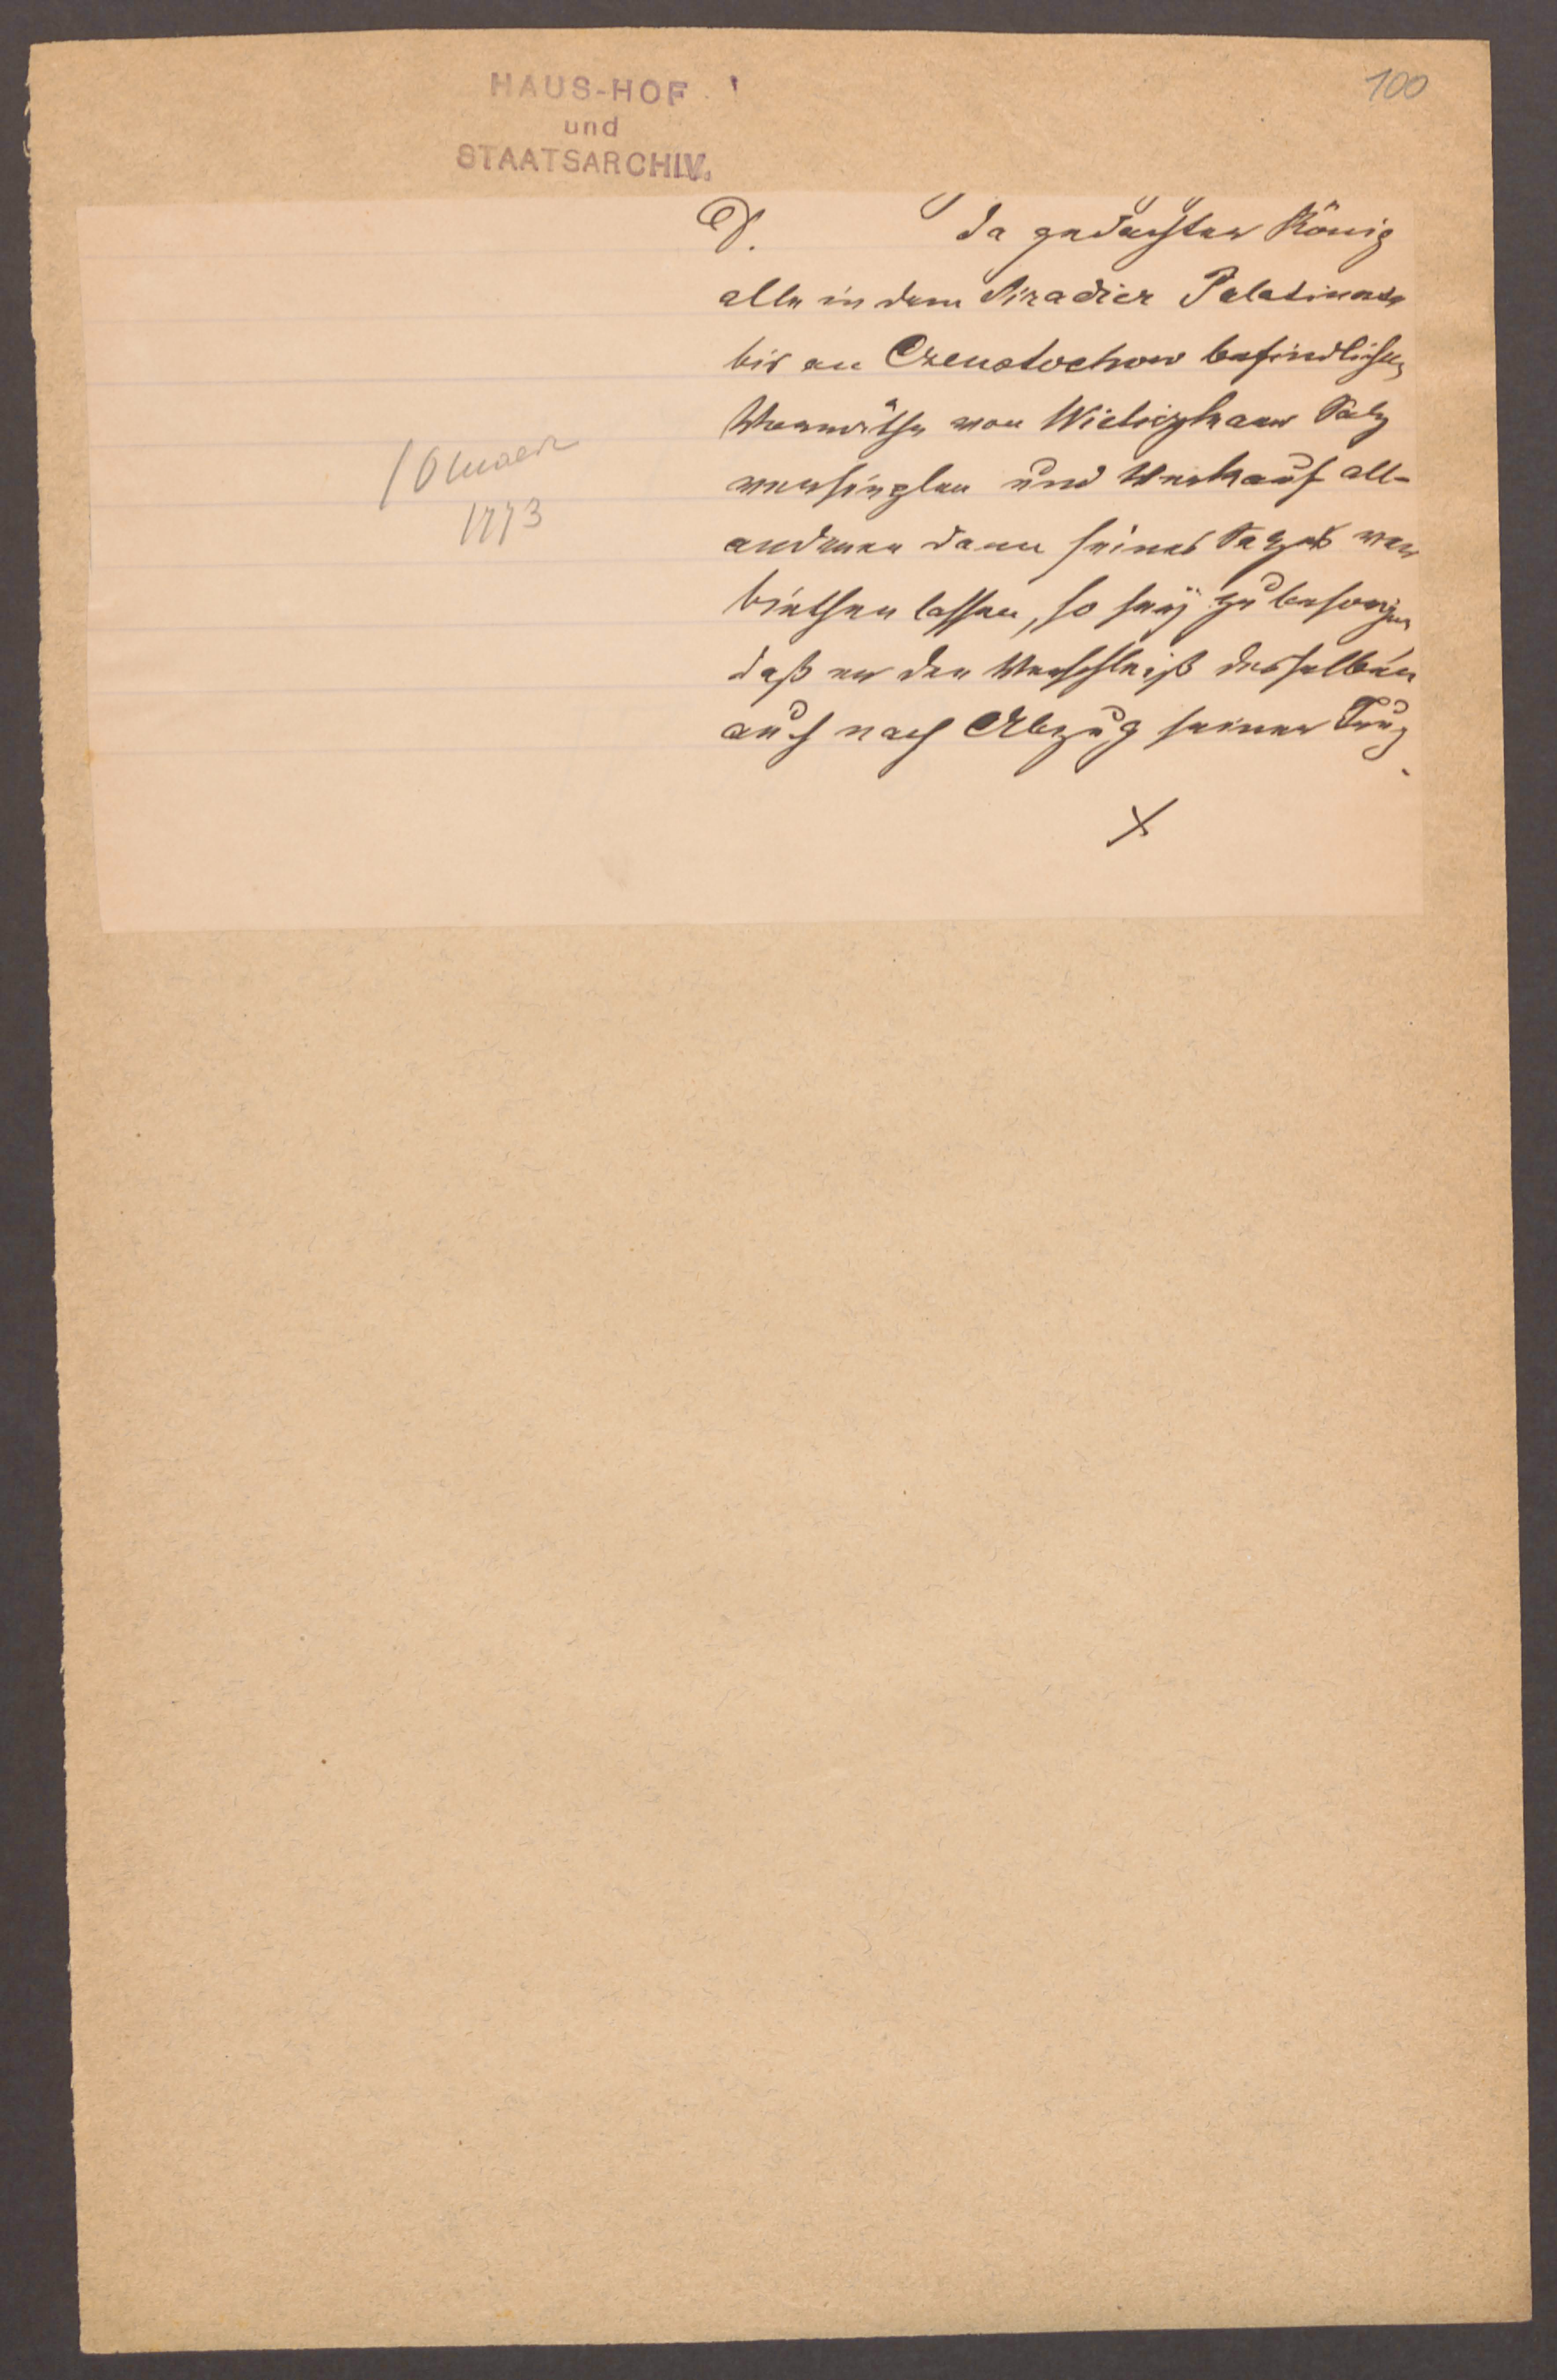 HAUS-HOF
und
STAATSARCHIV.
100
D. da gedachter König
alle in dem Siradier Palatinate
bis an Czenstochow befindlichen
Vorräthe von Wieliczkaer Salz
versieglen und Verkauf all-
anderen dann seines Salzes ver
biethen lassen, so seÿ zu besorgen
daß er den Verschleiß desselben
auch nach Abzug seiner Trup
10 maerz
1773